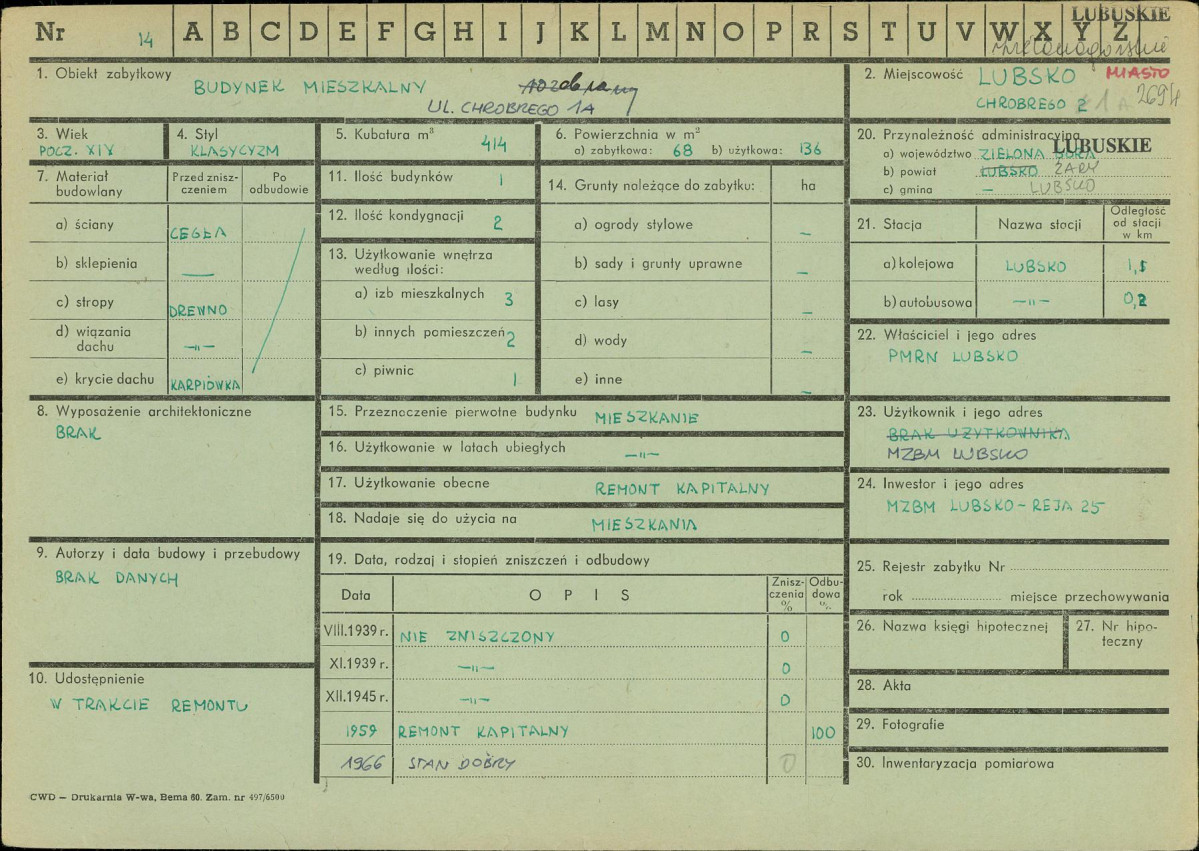 LUBUSKIE
Nr 14 A B C D E F G H I J K L M N O P R S T U V W X Y Z
zielonogórskie
1. Obiekt zabytkowy
BUDYNEK MIESZKALNY rozebrany
UL. CHROBREGO 1A
2. Miejscowość LUBSKO MIASTO
CHROBREGO 2 1A 2694
3. Wiek
POCZ. XIX
4. Styl
KLASYCYZM
5. Kubatura m³
414
6. Powierzchnia w m²
a) zabytkowa: 68 b) użytkowa: 136
20. Przynależność administracyjna
LUBUSKIE
a) województwo ZIELONA GÓRA
b) powiat LUBSKO ŻARY
c) gmina — LUBSKO
7. Materiał budowlany
Przed zniszczeniem
Po odbudowie
a) ściany CEGŁA
b) sklepienia —
c) stropy DREWNO
d) wiązania dachu —"—
e) krycie dachu KARPIÓWKA
11. Ilość budynków 1
12. Ilość kondygnacji 2
13. Użytkowanie wnętrza
według ilości:
a) izb mieszkalnych 3
b) innych pomieszczeń 2
c) piwnic 1
14. Grunty należące do zabytku: ha
a) ogrody stylowe —
b) sady i grunty uprawne —
c) lasy —
d) wody —
e) inne —
21. Stacja Nazwa stacji Odległość od stacji w km
a) kolejowa LUBSKO 1,5
b) autobusowa —"— 0,2
22. Właściciel i jego adres
PMRN LUBSKO
8. Wyposażenie architektoniczne
BRAK
15. Przeznaczenie pierwotne budynku MIESZKANIE
16. Użytkowanie w latach ubiegłych —"—
17. Użytkowanie obecne REMONT KAPITALNY
18. Nadaje się do użycia na MIESZKANIA
23. Użytkownik i jego adres
BRAK UŻYTKOWNIKA
MZBM LUBSKO
24. Inwestor i jego adres
MZBM LUBSKO - REJA 25
9. Autorzy i data budowy i przebudowy
BRAK DANYCH
19. Data, rodzaj i stopień zniszczeń i odbudowy
Data OPIS Zniszczenia % Odbudowa %
VIII.1939 r. NIE ZNISZCZONY 0
XI.1939 r. —"— 0
XII.1945 r. —"— 0
1959 REMONT KAPITALNY 100
1966 STAN DOBRY 0
25. Rejestr zabytku Nr
rok miejsce przechowywania
26. Nazwa księgi hipotecznej
27. Nr hipoteczny
10. Udostępnienie
W TRAKCIE REMONTU
28. Akta
29. Fotografie
30. Inwentaryzacja pomiarowa
CWD — Drukarnia W-wa, Bema 60. Zam. nr 497/6500